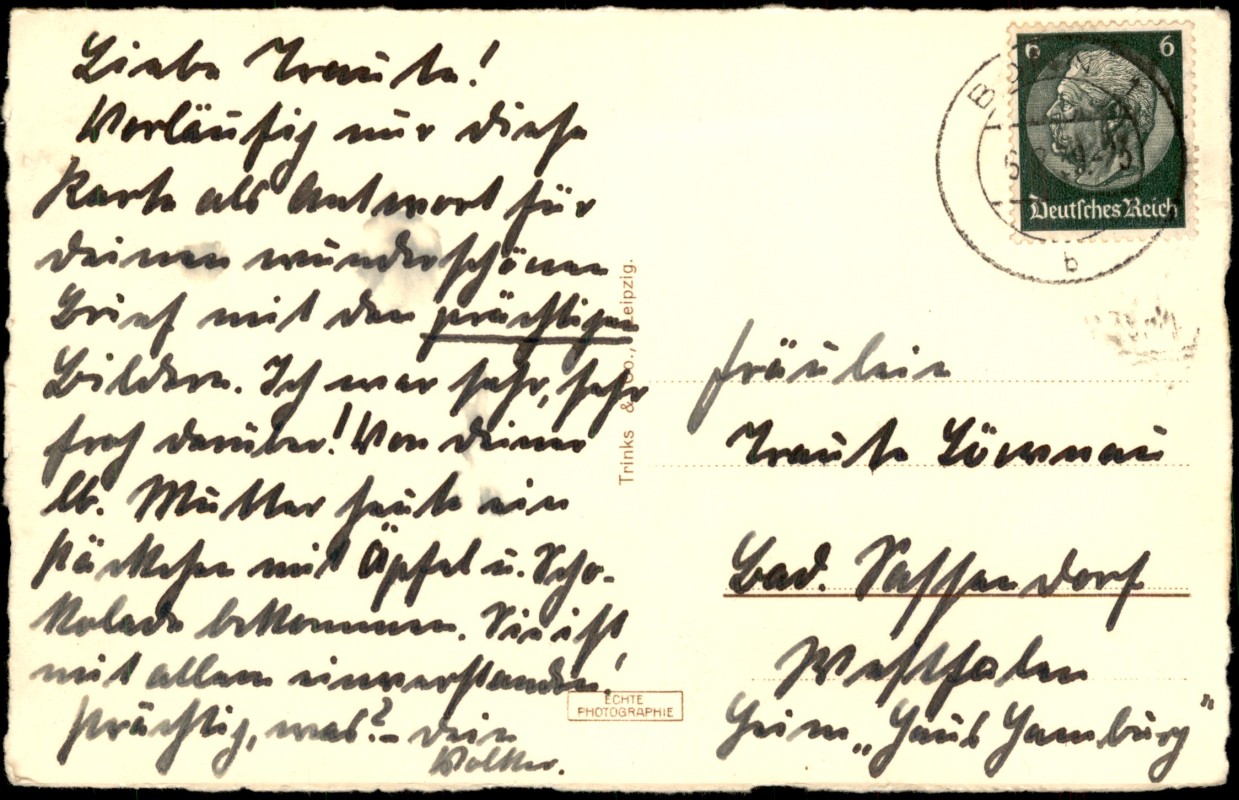 Liebe Traute!
Vorläufig nur diese
Karte als Antwort für
deinen wunderschönen
Brief mit den prächtigen
Bildern. Ich war sehr, sehr
froh darüber! Von deiner
lb. Mutter heute ein
Päckchen mit Äpfel u. Scho-
kolade bekommen. Sie ist
mit allem einverstanden!
Prächtig, was? – Dein
Volker.
Trinks & Co., Leipzig.
ECHTE
PHOTOGRAPHIE
6
Deutsches Reich
b
Fräulein
Traute Löwnau
Bad. Sassendorf
Westfalen
Heim „Haus Hamburg"